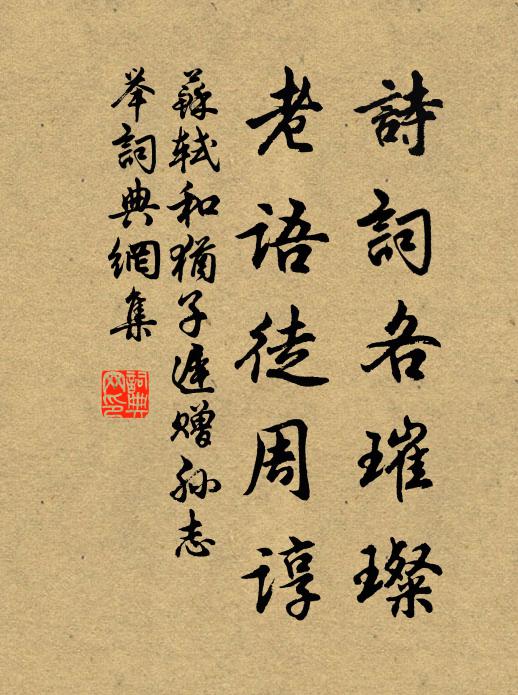 詩詞各璀璨
老語徒周諄
蘇軾和猶子遲贈孫志
举詞典網集
詞典
网印